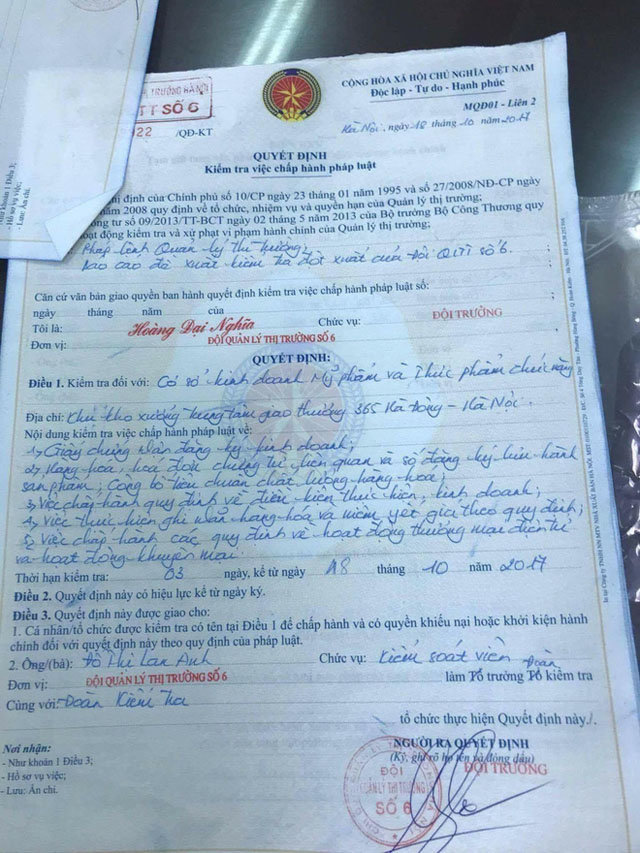 TRƯỜNG HÀ NỘI
CỘNG HÒA XÃ HỘI CHỦ NGHĨA VIỆT NAM
TT SỐ 6
Độc lập - Tự do - Hạnh phúc
MQĐ01 - Liên 2
22 /QĐ-KT
Hà Nội, ngày 18 tháng 10 năm 2017
QUYẾT ĐỊNH
Kiểm tra việc chấp hành pháp luật
định của Chính phủ số 10/CP ngày 23 tháng 01 năm 1995 và số 27/2008/NĐ-CP ngày
năm 2008 quy định về tổ chức, nhiệm vụ và quyền hạn của Quản lý thị trường;
tư số 09/2013/TT-BCT ngày 02 tháng 5 năm 2013 của Bộ trưởng Bộ Công Thương quy
động kiểm tra và xử phạt vi phạm hành chính của Quản lý thị trường;
Pháp lệnh Quản lý thị trường;
Báo cáo đề xuất kiểm tra đột xuất của Đội QLTT số 6.
Căn cứ văn bản giao quyền ban hành quyết định kiểm tra việc chấp hành pháp luật số:
ngày tháng năm của
Tôi là: Hoàng Đại Nghĩa Chức vụ: ĐỘI TRƯỞNG
Đơn vị: ĐỘI QUẢN LÝ THỊ TRƯỜNG SỐ 6
QUYẾT ĐỊNH:
Điều 1. Kiểm tra đối với: Cơ sở kinh doanh Mỹ phẩm và Thực phẩm chức năng
Địa chỉ: Khu kho xưởng trung tâm giao thương 365 Hà Đông - Hà Nội.
Nội dung kiểm tra việc chấp hành pháp luật về:
1, Giấy chứng nhận đăng ký kinh doanh;
2, Hàng hóa, hóa đơn chứng từ liên quan và số đăng ký lưu hành
sản phẩm; Công bố tiêu chuẩn chất lượng hàng hóa;
3, Việc chấp hành quy định về điều kiện thực hiện, kinh doanh;
4, Việc thực hiện ghi nhãn hàng hóa và niêm yết giá theo quy định;
5, Việc chấp hành các quy định về hoạt động thương mại điện tử
và hoạt động khuyến mại.
Thời hạn kiểm tra: 03 ngày, kể từ ngày 18 tháng 10 năm 2017
Điều 2. Quyết định này có hiệu lực kể từ ngày ký.
Điều 3. Quyết định này được giao cho:
1. Cá nhân/tổ chức được kiểm tra có tên tại Điều 1 để chấp hành và có quyền khiếu nại hoặc khởi kiện hành
chính đối với quyết định này theo quy định của pháp luật.
2. Ông/(bà): Đỗ Thị Lan Anh Chức vụ: Kiểm soát viên
Đoàn
Đơn vị: ĐỘI QUẢN LÝ THỊ TRƯỜNG SỐ 6 làm Tổ trưởng Tổ kiểm tra
Cùng với: Đoàn Kiểm tra
tổ chức thực hiện Quyết định này./.
Nơi nhận:
- Như khoản 1 Điều 3;
- Hồ sơ vụ việc;
- Lưu: Ấn chỉ.
NGƯỜI RA QUYẾT ĐỊNH
(Ký, ghi rõ họ tên và đóng dấu)
ĐỘI TRƯỞNG
ĐỘI
QUẢN LÝ THỊ TRƯỜNG
SỐ 6
khoản 1 Điều 3;
- Hồ sơ vụ việc;
- Lưu: Ấn chỉ.